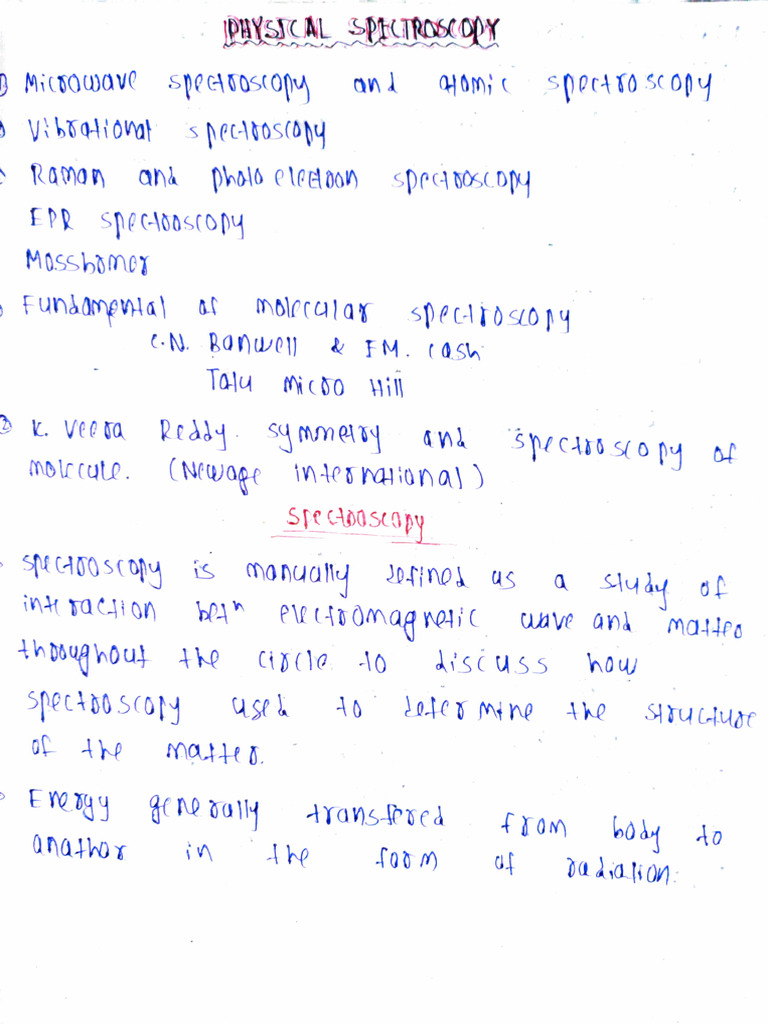 PHYSICAL SPECTROSCOPY
Microwave spectroscopy and atomic spectroscopy
Vibrational spectroscopy
Raman and photo electron spectroscopy
EPR spectroscopy
Mossbomer
Fundamental of molecular spectroscopy
C.N. Banwell & EM. cash
Tatu micro Hill
② K. Veera Reddy. symmetry and spectroscopy of
molecule. (Newage international)
Spectroscopy
spectroscopy is manually defined as a study of
interaction betⁿ electromagnetic wave and matter
throughout the circle to discuss how
spectroscopy used to determine the structure
of the matter.
Energy generally transfered from body to
anathor in the form of radiation.